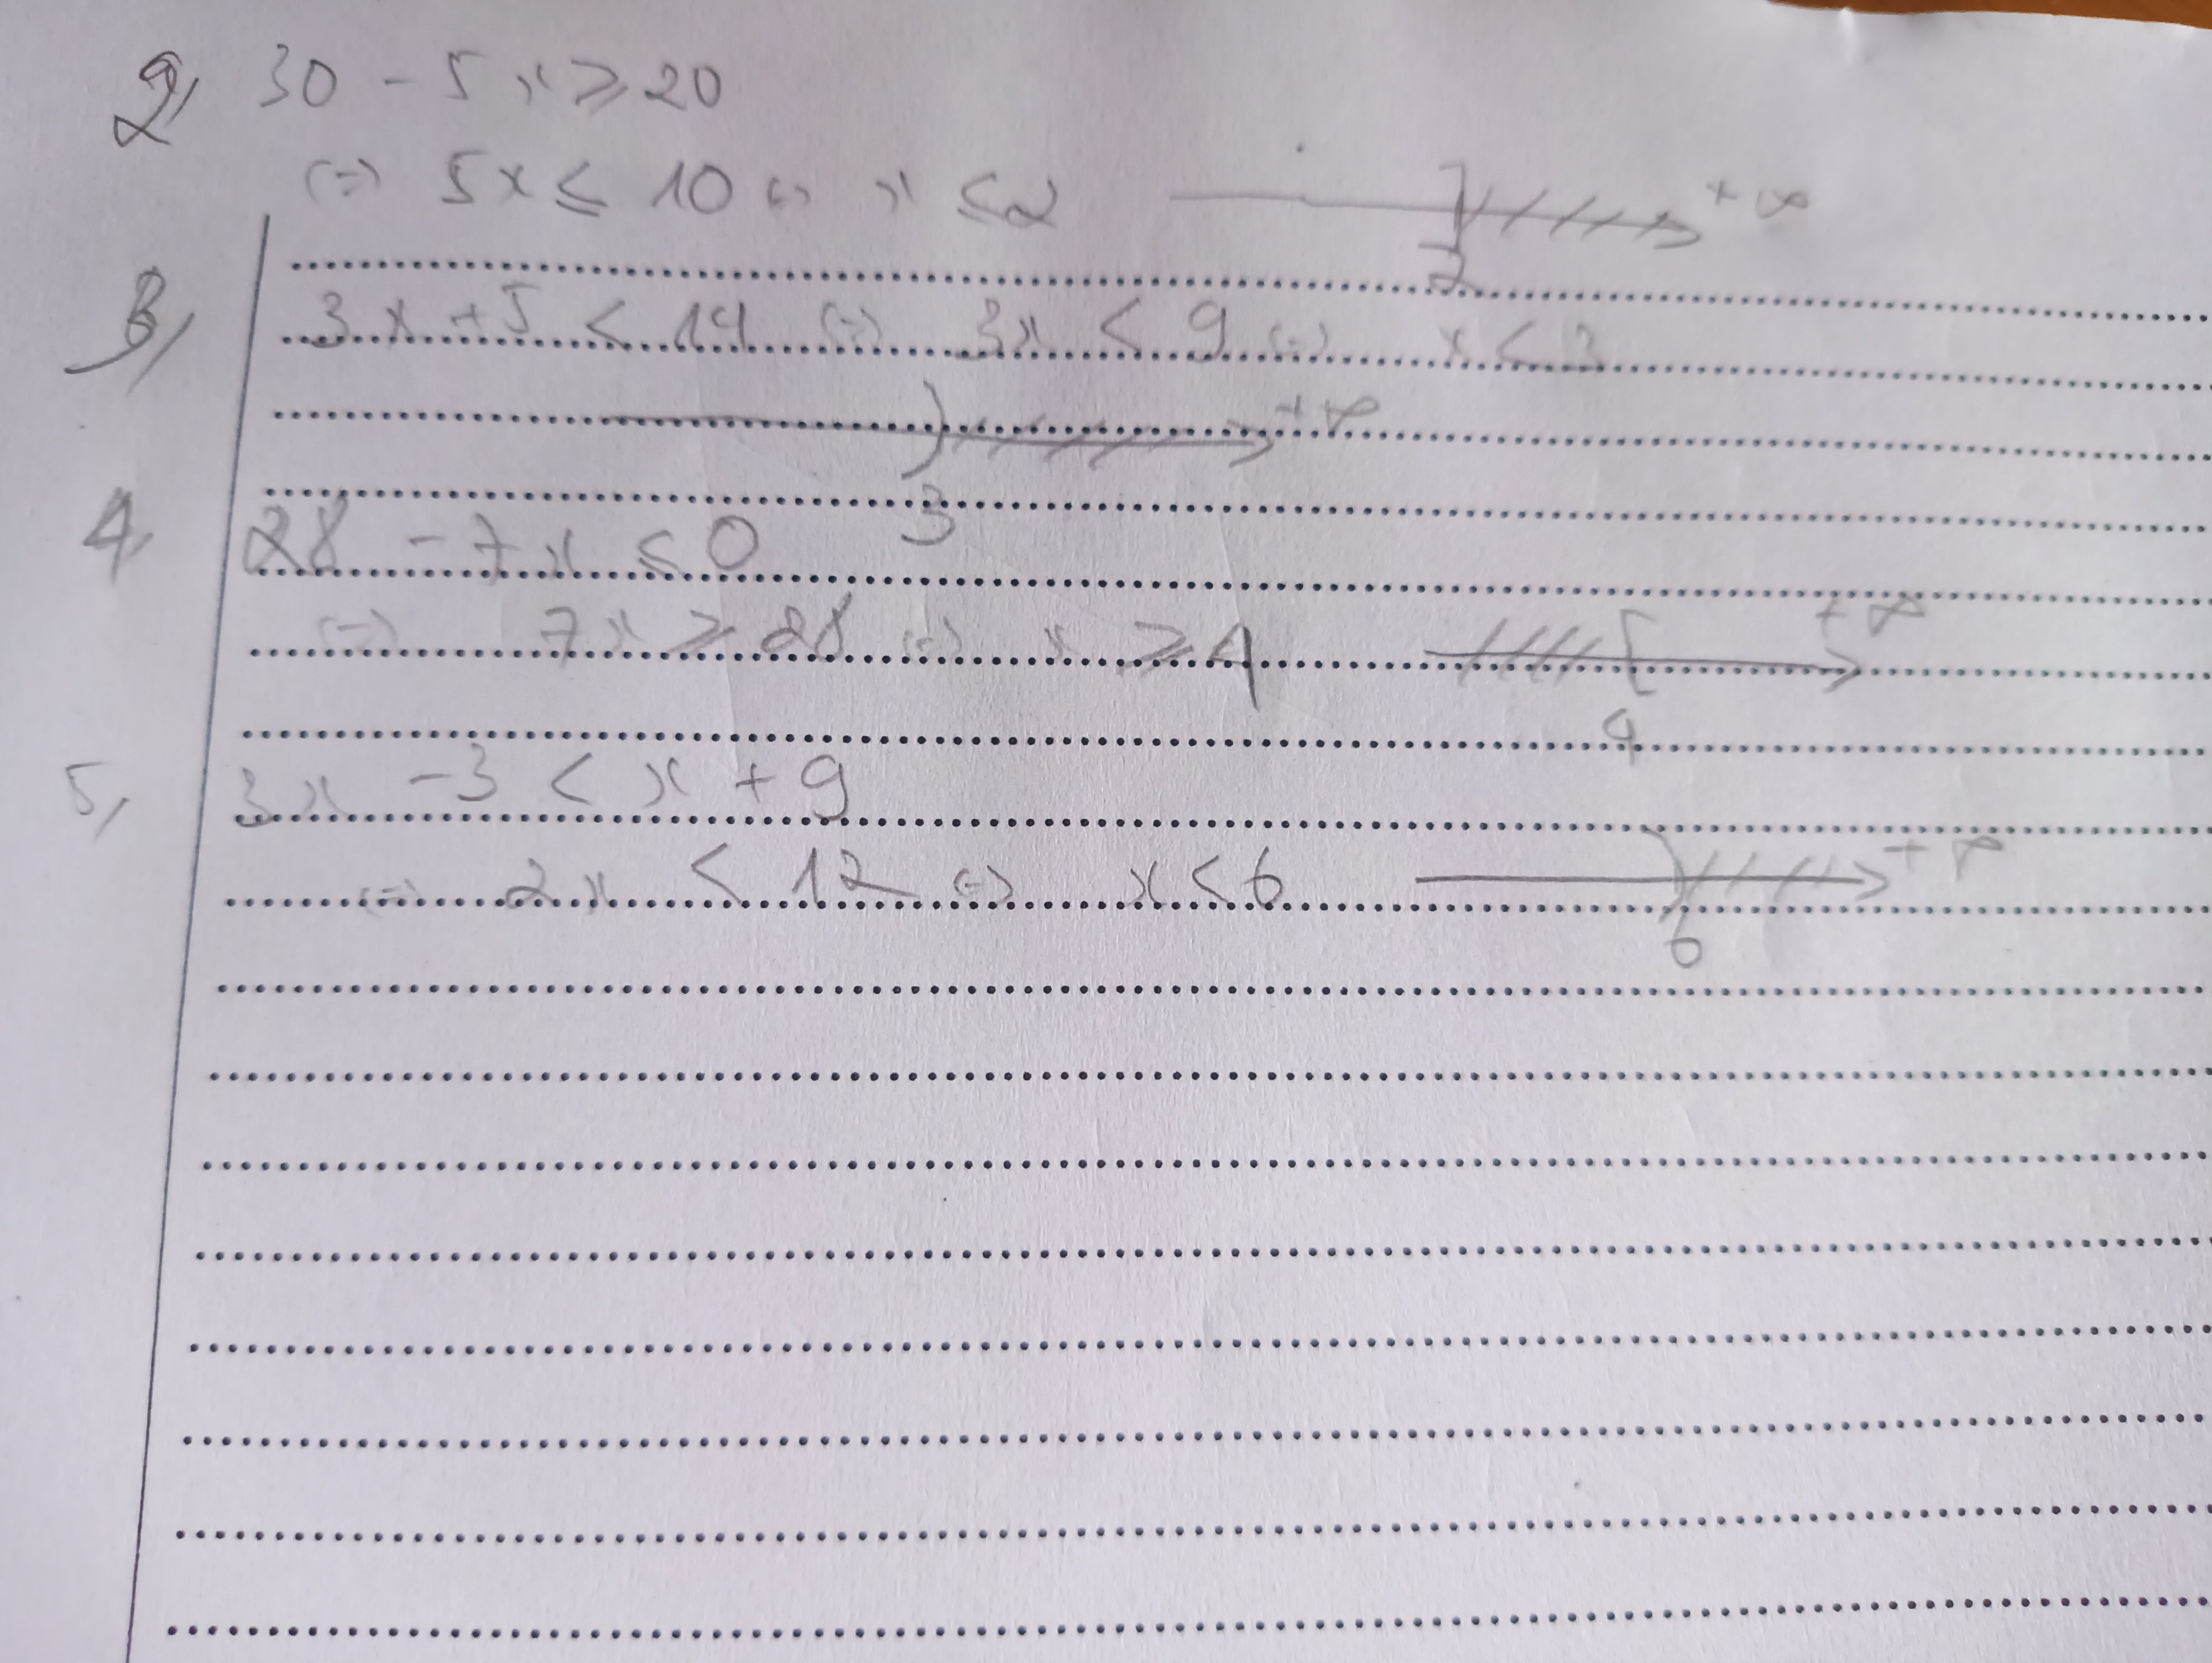 2, 30 - 5x ⩾ 20
(=) 5x ⩽ 10 (=) x ⩽ 2 ] +∞
2
3, 3x + 5 < 14 (=) 3x < 9 (=) x < 3
) +∞
3
4, 28 - 7x ⩽ 0
(=) 7x ⩾ 28 (=) x ⩾ 4 [ +∞
4
5, 3x - 3 < x + 9
(=) 2x < 12 (=) x < 6 ) +∞
6